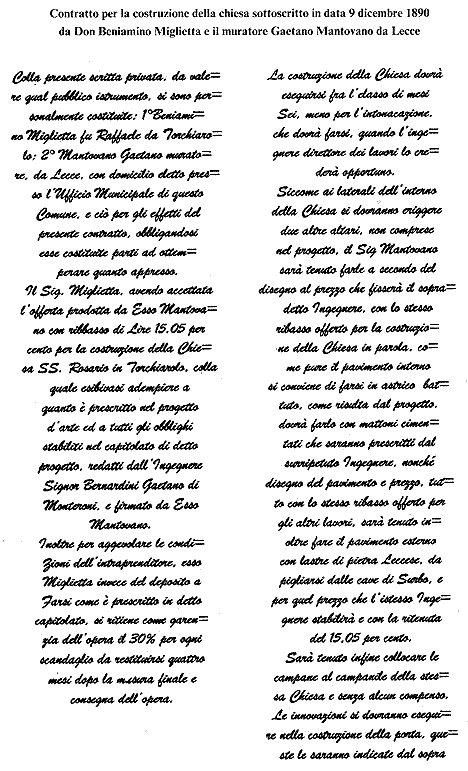 Contratto per la costruzione della chiesa sottoscritto in data 9 dicembre 1890
da Don Beniamino Miglietta e il muratore Gaetano Mantovano da Lecce
Colla presente scritta privata, da vale=
re qual pubblico istrumento, si sono per=
sonalmente costituite: 1° Beniami=
no Miglietta fu Raffaele da Torchiaro=
lo; 2° Mantovano Gaetano murato=
re, da Lecce, con domicilio eletto pres=
so l'Ufficio Municipale di questo
Comune, e ciò per gli effetti del
presente contratto, obbligandosi
esse costituite parti ad ottem=
perare quanto appresso.
Il Sig. Miglietta, avendo accettata
l'offerta prodotta da Esso Mantova=
no con ribbasso di Lire 15,05 per
cento per la costruzione della Chie=
sa SS. Rosario in Torchiarolo, colla
quale esibivasi adempiere a
quanto è prescritto nel progetto
d'arte ed a tutti gli obblighi
stabiliti nel capitolato di detto
progetto, redatti dall'Ingegnere
Signor Bernardini Gaetano di
Monteroni, e firmato da Esso
Mantovano.
Inoltre per aggevolare le condi=
zioni dell'intraprenditore, esso
Miglietta invece del deposito a
Farsi come è prescritto in detto
capitolato, si ritiene come garen=
zia dell'opera il 30% per ogni
scandaglio da restituirsi quattro
mesi dopo la misura finale e
consegna dell'opera.
La costruzione della Chiesa dovrà
eseguirsi fra l'elasso di mesi
Sei, meno per l'intonacazione,
che dovrà farsi, quando l'inge=
gnere direttore dei lavori lo cre=
derà opportuno.
Siccome ai laterali dell'interno
della Chiesa si dovranno eriggere
due altre altari, non comprese
nel progetto, il Sig Mantovano
sarà tenuto farle a secondo del
disegno al prezzo che fisserà il sopra=
detto Ingegnere, con lo stesso
ribasso offerto per la costruzio=
ne della Chiesa in parola, co=
me pure il pavimento interno
si conviene di farsi in astrico bat=
tuto, come risulta dal progetto,
dovrà farlo con mattoni cimen=
tati che saranno prescritti dal
surripetuto Ingegnere, nonché
disegno del pavimento e prezzo, tut=
to con lo stesso ribasso offerto per
gli altri lavori, sarà tenuto in=
oltre fare il pavimento esterno
con lastre di pietra Leccese, da
pigliarsi dalle cave di Surbo, e
per quel prezzo che l'istesso Inge=
gnere stabilirà e con la ritenuta
del 15,05 per cento.
Sarà tenuto infine collocare le
campane al campanile della stes=
sa Chiesa e senza alcun compenso.
Le innovazioni si dovranno esegui=
re nella costruzione della porta, que=
ste le saranno indicate dal sopra